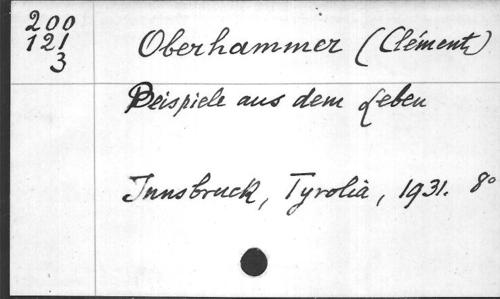 200
121
3
Oberhammer (Clément)
Beispiele aus dem Leben
Innsbruck, Tyrolia, 1931. 8°